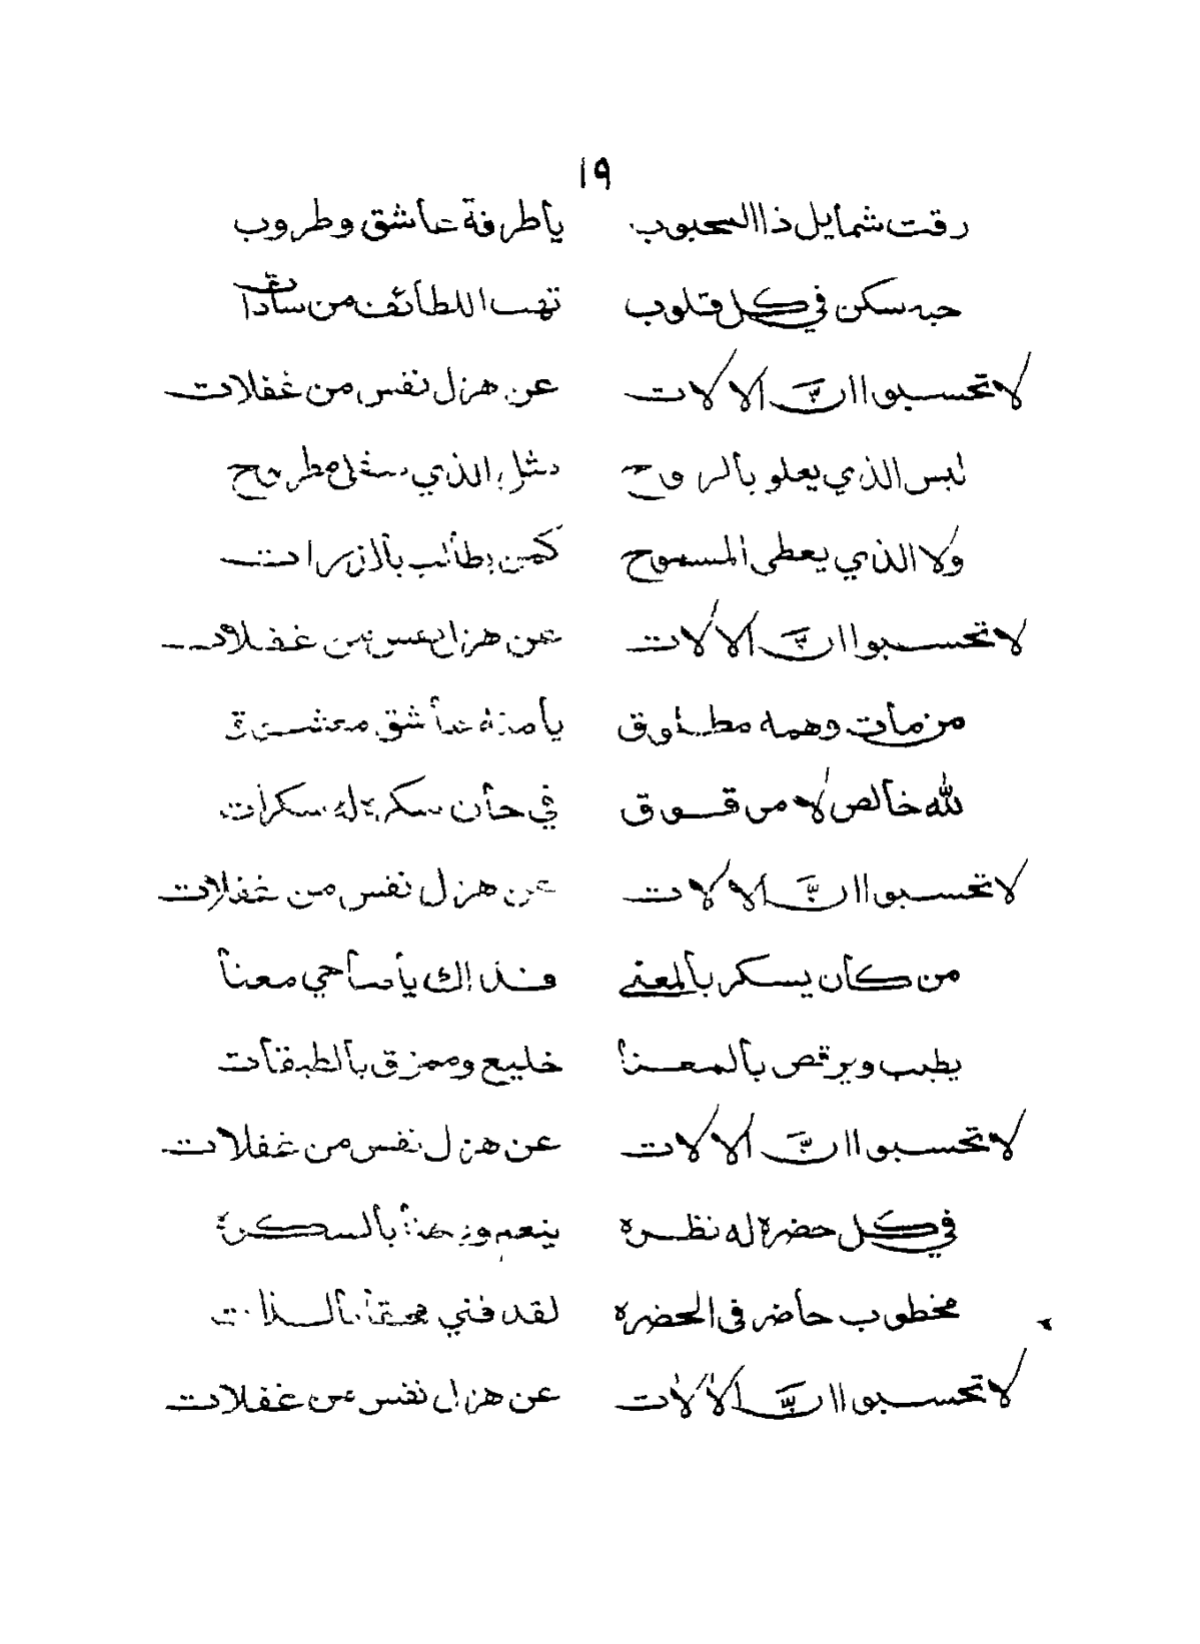 ١٩
رقت شمايل ذاالمحبوب ياطرفة عاشق وطروب
حبه سكن في كل قلوب تهب اللطائف من سادات
لا تحسبوا ان الالات عن هزل نفس من غفلات
ليس الذي يعلو بالروح مثل الذي مطروح
ولا الذي يعطى المسموح كمن يطالب بالازرات
لا تحسبوا ان الالات عن هزل نفس من غفلات
من مات وهمه مطلوق يا عاشق معشوق
لله خالص لا مرقوق في حان سكر له سكرات
لا تحسبوا ان الالات عن هزل نفس من غفلات
من كان يسكر بالمعنى فذاك ياصاحي معنا
يطيب ويرقص بالمعنا خليع وممزق بالطبقات
لا تحسبوا ان الالات عن هزل نفس من غفلات
في كل حضرة له نظره ينعم بالسكره
مخطوب حاضر في الحضره لقد فني بالذات
لا تحسبوا ان الالات عن هزل نفس من غفلات